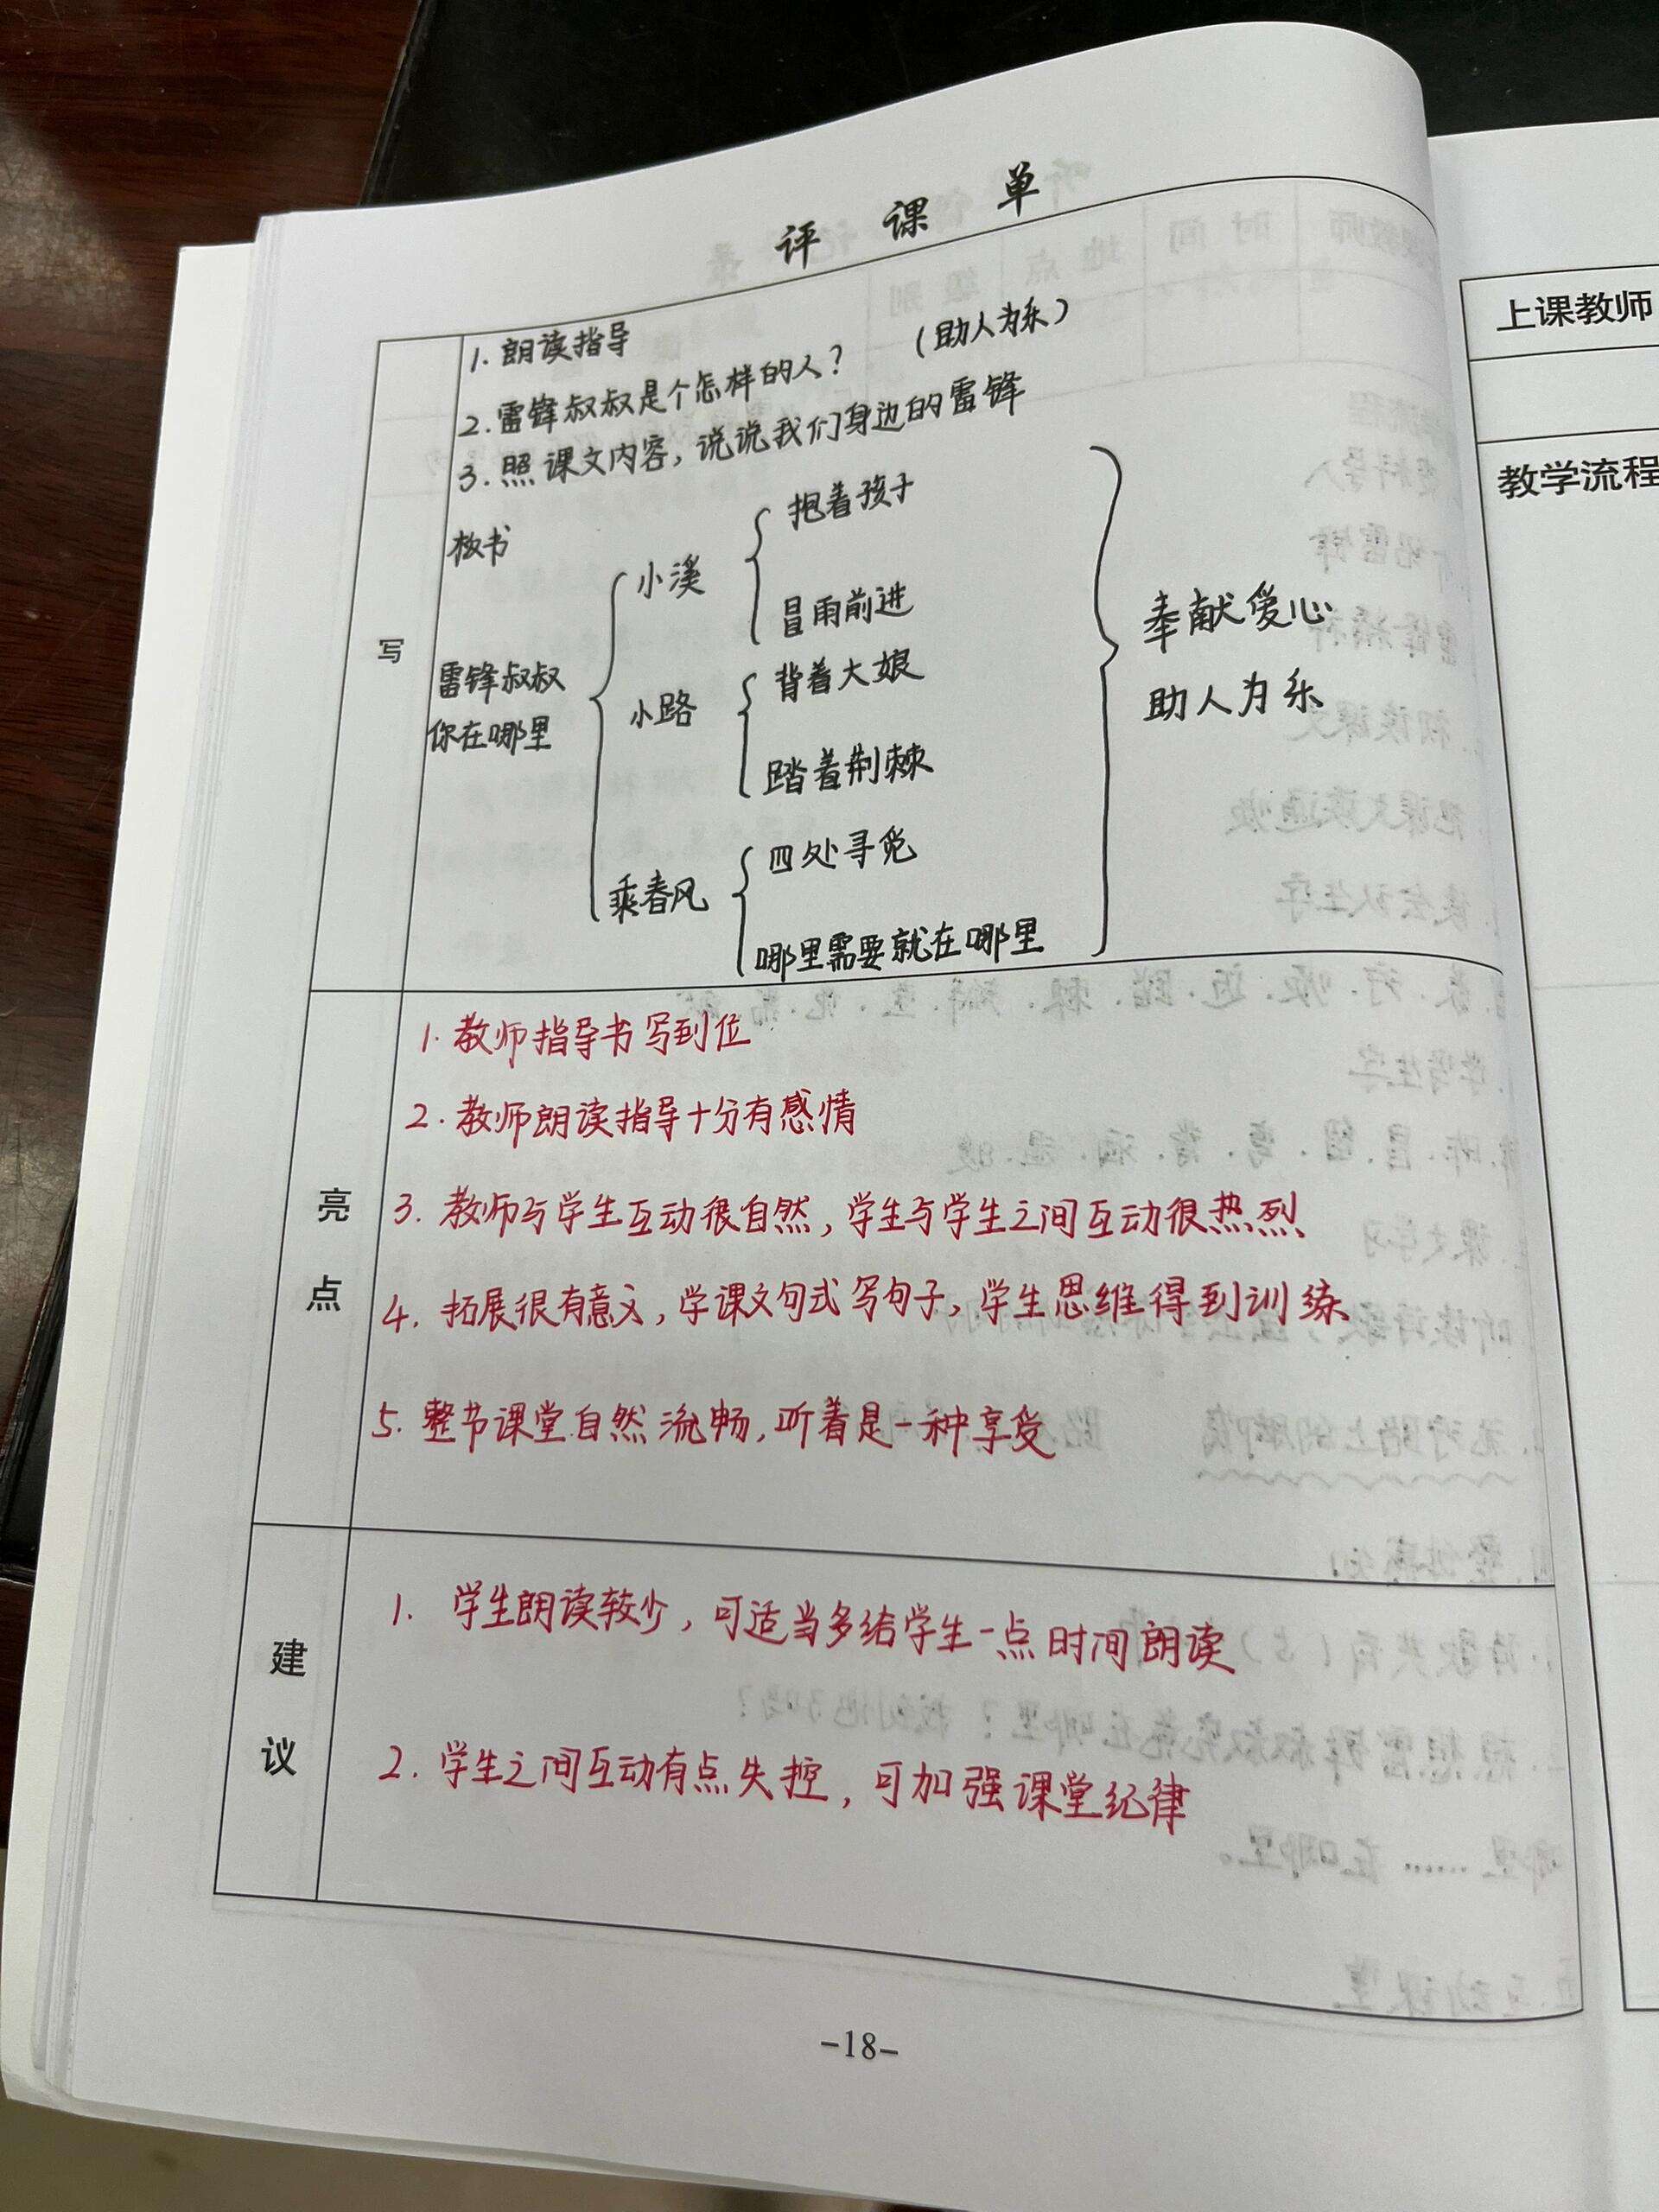 评课单
1. 朗读指导
2. 雷锋叔叔是个怎样的人？（助人为乐）
3. 照课文内容，说说我们身边的雷锋
板书
写
雷锋叔叔
你在哪里
小溪
抱着孩子
冒雨前进
小路
背着大娘
踏着荆棘
乘春风
四处寻觅
哪里需要就在哪里
奉献爱心
助人为乐
亮点
1. 教师指导书写到位
2. 教师朗读指导十分有感情
3. 教师与学生互动很自然，学生与学生之间互动很热烈
4. 拓展很有意义，学课文句式写句子，学生思维得到训练
5. 整节课堂自然流畅，听着是一种享受
建议
1. 学生朗读较少，可适当多给学生一点时间朗读
2. 学生之间互动有点失控，可加强课堂纪律
-18-
上课教师
教学流程